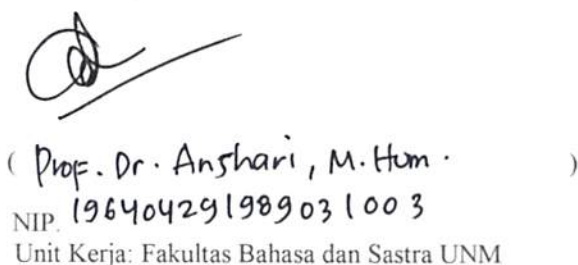 ( Prof. Dr. Anshari, M. Hum. )
NIP. 196404291989031003
Unit Kerja: Fakultas Bahasa dan Sastra UNM